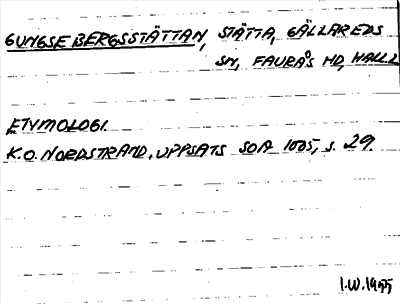 GUNGSEBERGSSTÄTTAN, STÄTTA, GÄLLAREDS
SN, FAURÅS HD, HALL
ETYMOLOGI.
K.O. NORDSTRAND, UPPSATS SOA 1005, s. 29.
I.W. 1955